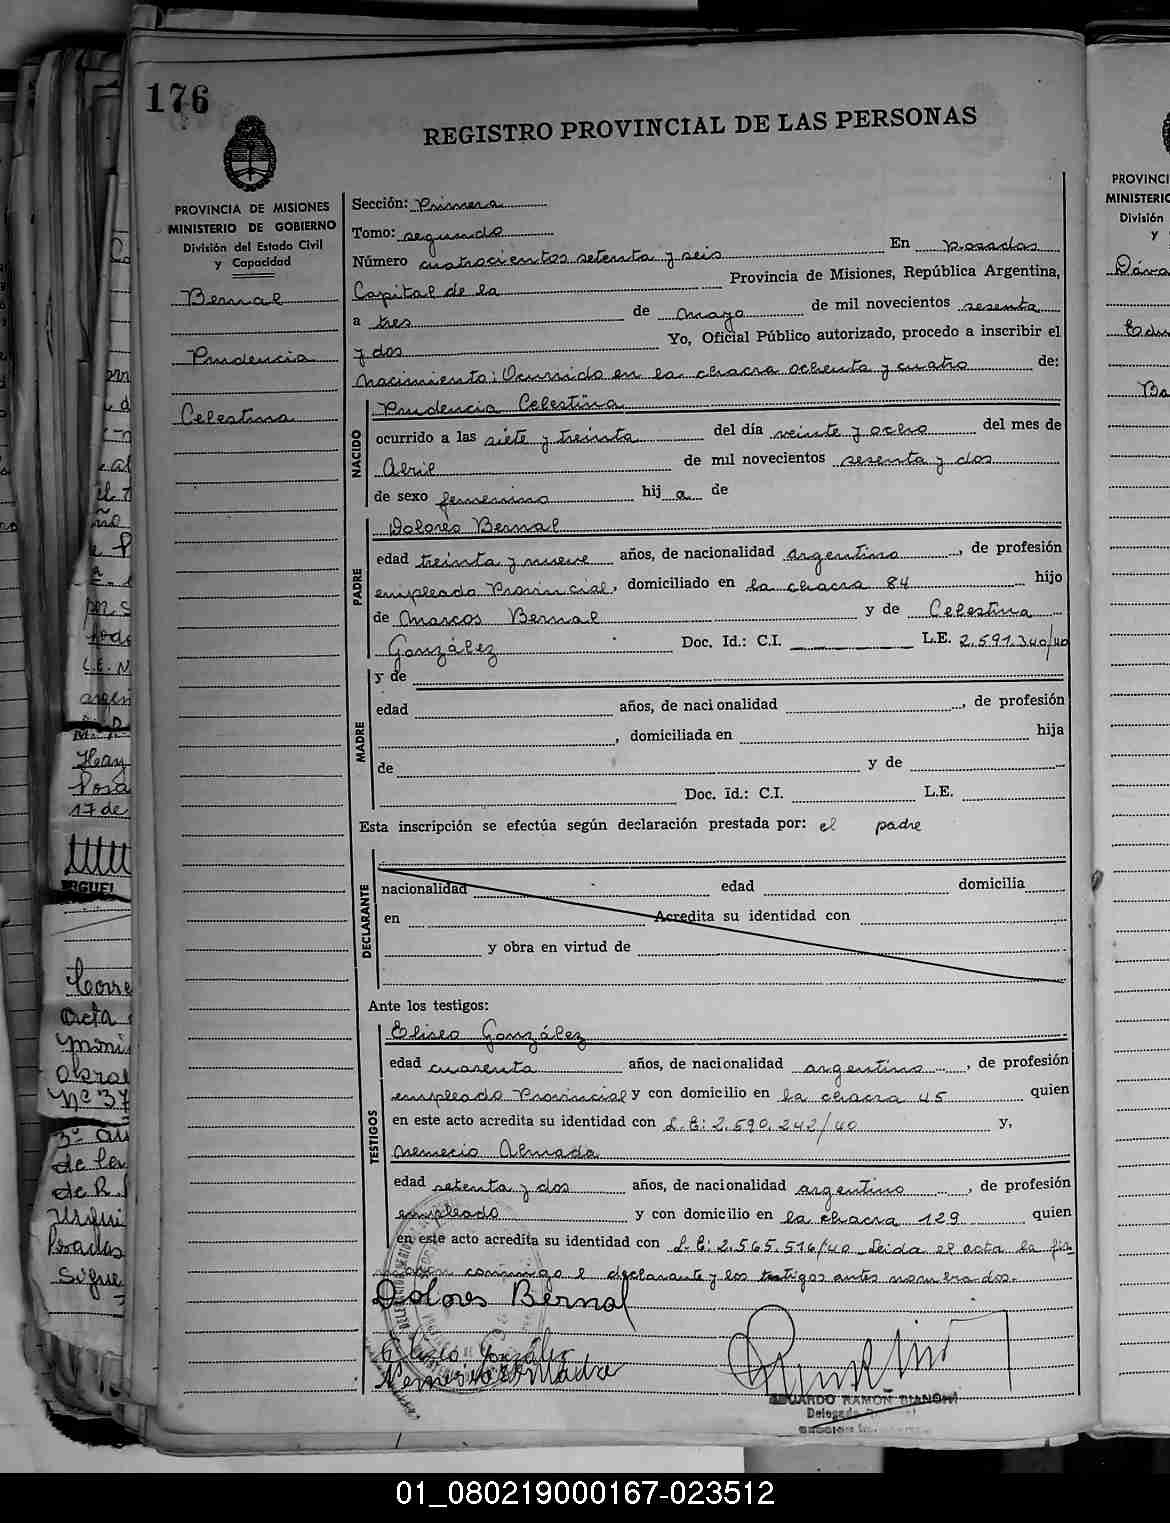 176
REGISTRO PROVINCIAL DE LAS PERSONAS
PROVINCIA DE MISIONES
MINISTERIO DE GOBIERNO
División del Estado Civil
y Capacidad
Bernal
Prudencia
Celestina
Sección: Primera
Tomo: segundo
Número cuatrocientos setenta y seis En Posadas
Capital de la Provincia de Misiones, República Argentina,
a tres de Mayo de mil novecientos sesenta
y dos Yo, Oficial Público autorizado, procedo a inscribir el
Nacimiento: Ocurrido en la chacra ochenta y cuatro de:
NACIDO
Prudencia Celestina
ocurrido a las siete y treinta del día veinte y ocho del mes de
Abril de mil novecientos sesenta y dos
de sexo femenino hij a de
PADRE
Dolores Bernal
edad treinta y nueve años, de nacionalidad argentino, de profesión
empleado Provincial, domiciliado en la chacra 84 hijo
de Marcos Bernal y de Celestina
González Doc. Id.: C.I. L.E. 2.591.340/40
MADRE
y de
edad años, de nacionalidad , de profesión
, domiciliada en hija
de y de
Doc. Id.: C.I. L.E.
Esta inscripción se efectúa según declaración prestada por: el padre
DECLARANTE
nacionalidad edad domicilia
en Acredita su identidad con
y obra en virtud de
Ante los testigos:
TESTIGOS
Eliseo González
edad cuarenta años, de nacionalidad argentino, de profesión
empleado Provincial y con domicilio en la chacra 45 quien
en este acto acredita su identidad con L.E: 2.590.242/40 y,
Nemecio Almada
edad setenta y dos años, de nacionalidad argentino, de profesión
empleado y con domicilio en la chacra 129 quien
en este acto acredita su identidad con L.E: 2.565.516/40 Leida el acta la fir
man conmigo el declarante y los testigos antes nomerados.
Dolores Bernal
Eliseo González
Nemecio Almada
EDUARDO RAMON BIANCHI
Delegado
PROVINCI
MINISTERIO
División
y
01_080219000167-023512